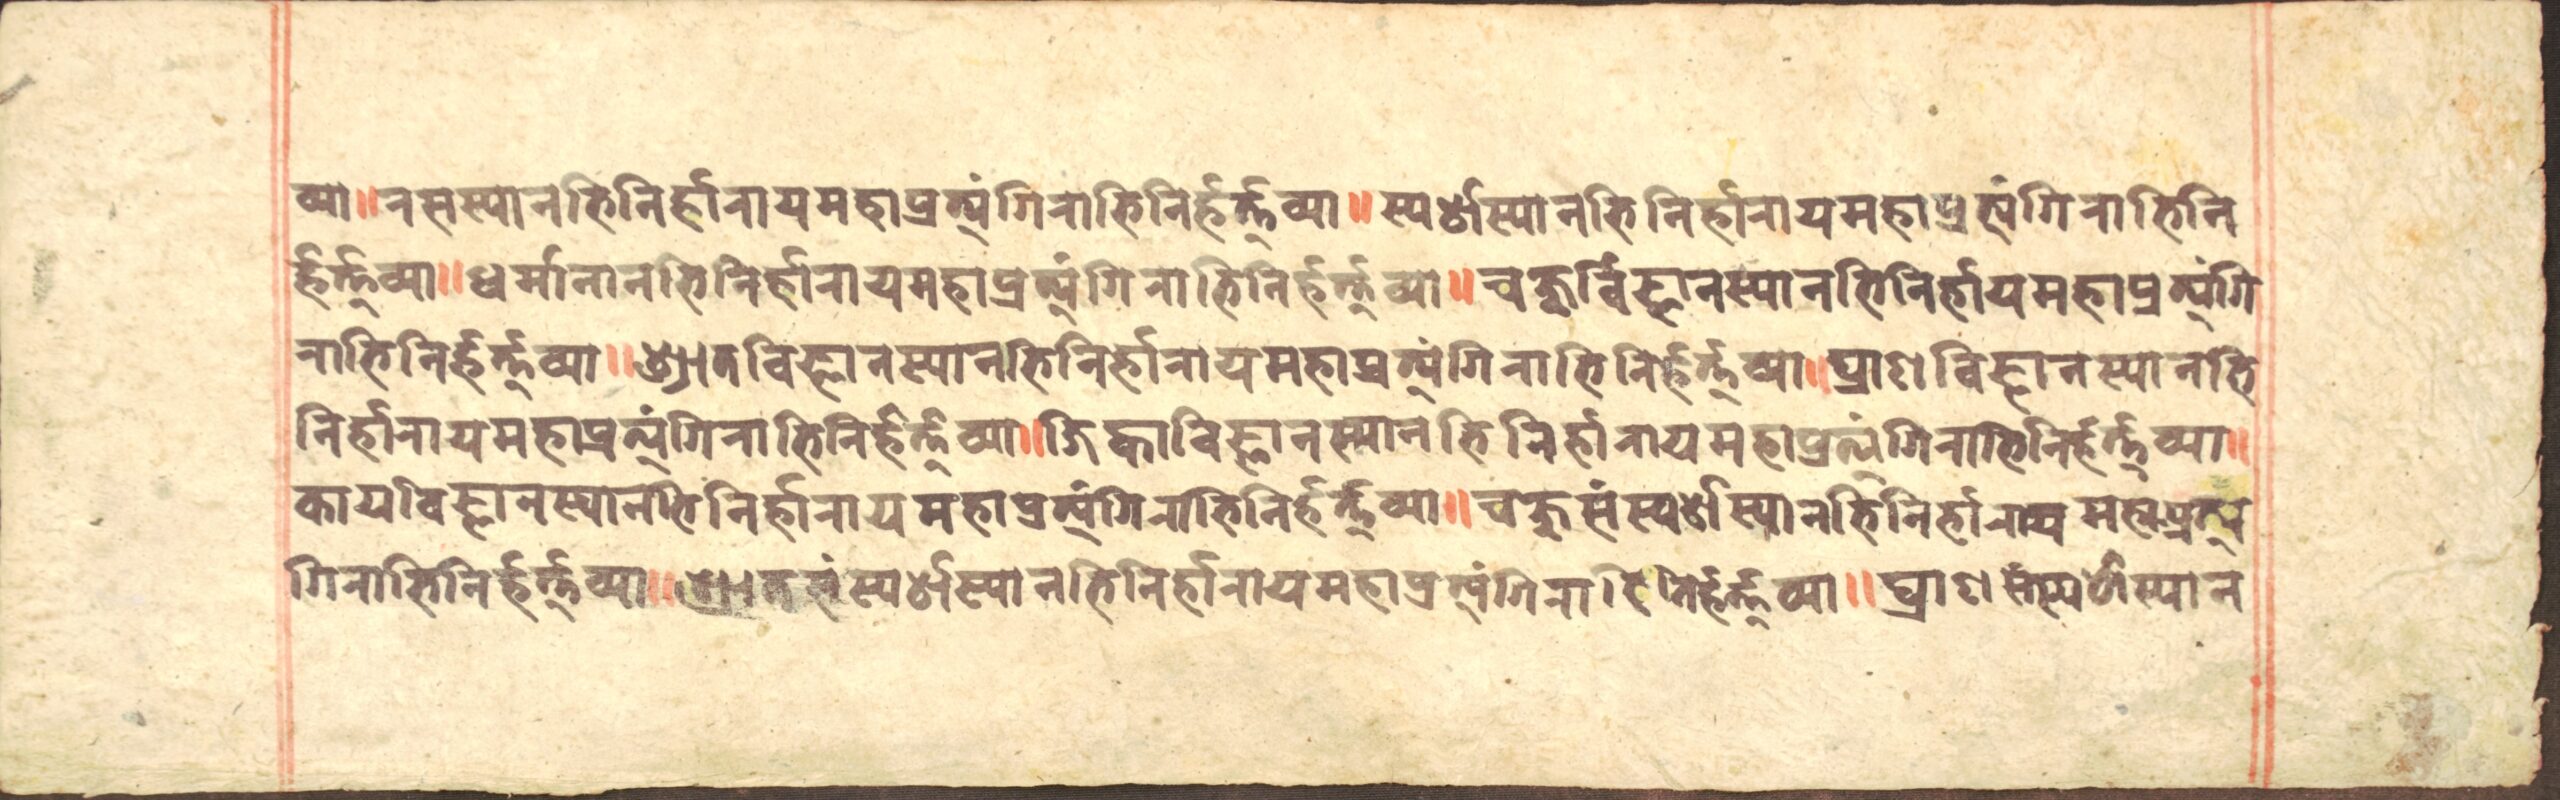 व्या॥नसस्यानभिनिर्हानायमहाप्रत्यंगिनाभिनिर्हर्त्तव्या॥स्पर्शस्यानभिनिर्हानायमहाप्रत्यंगिनाभिनि
र्हर्त्तव्या॥धर्मानानभिनिर्हानायमहाप्रत्यंगिनाभिनिर्हर्त्तव्या॥चक्षुर्विज्ञानस्यानभिनिर्हायमहाप्रत्यंगि
नाभिनिर्हर्त्तव्या॥श्रोतविज्ञानस्यानभिनिर्हानायमहाप्रत्यंगिनाभिनिर्हर्त्तव्या॥घ्राणविज्ञानस्यानभि
निर्हानायमहाप्रत्यंगिनाभिनिर्हर्त्तव्या॥जिह्वाविज्ञानस्यानभिनिर्हानायमहाप्रत्यंगिनाभिनिर्हर्त्तव्या॥
कायविज्ञानस्यानभिनिर्हानायमहाप्रत्यंगिनाभिनिर्हर्त्तव्या॥चक्षुसंस्पर्शस्यानभिनिर्हानायमहाप्रत्यं
गिनाभिनिर्हर्त्तव्या॥श्रोतसंस्पर्शस्यानभिनिर्हानायमहाप्रत्यंगिनाभिनिर्हर्त्तव्या॥घ्राणसंस्पर्शस्यान